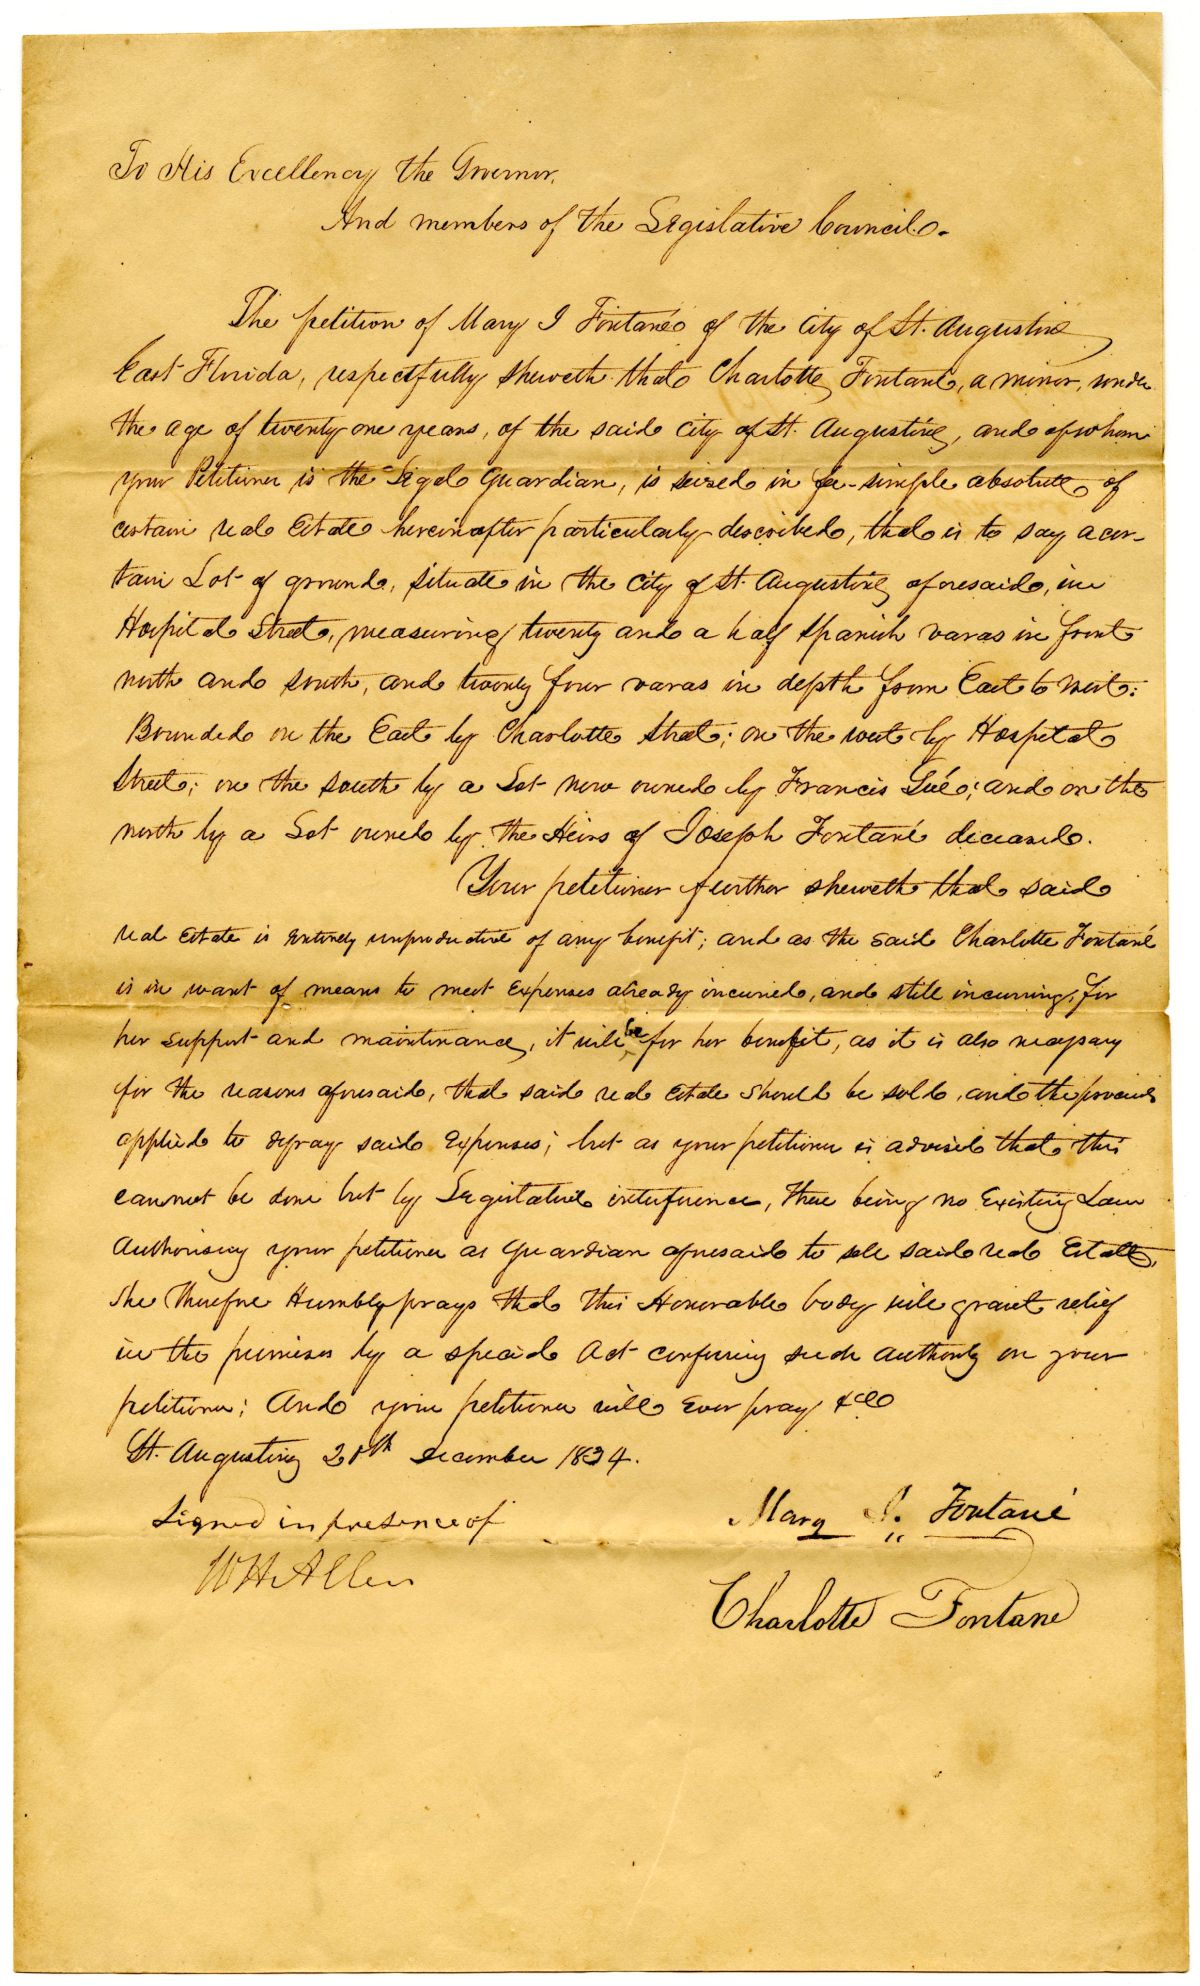 To His Excellency the Governor,
And members of the Legislative Council.
The petition of Mary I Fontané of the City of St. Augustine
East Florida, respectfully sheweth that Charlotte Fontané, a minor, under
the age of twenty one years, of the said City of St. Augustine, and of whom
your Petitioner is the Legal Guardian, is seized in fee-simple absolute of
certain real Estate hereinafter particularly described, that is to say a cer-
tain Lot of ground, situate in the City of St. Augustine aforesaid, in
Hospital Street, measuring twenty and a half Spanish varas in front
north and south, and twenty four varas in depth from East to West:
Bounded on the East by Charlotte Street; on the west by Hospital
Street; on the south by a Lot now owned by Francis Gué; and on the
north by a Lot owned by the Heirs of Joseph Fontané deceased.
Your petitioner further sheweth that said
real Estate is entirely unproductive of any benefit; and as the said Charlotte Fontané
is in want of means to meet expenses already incurred, and still incurring, for
her support and maintenance, it will be for her benefit, as it is also necessary
for the reasons aforesaid, that said real Estate should be sold, and the proceeds
applied to defray said Expenses; but as your petitioner is advised that this
cannot be done but by Legislative interference, there being no Existing Law
Authorising your petitioner as Guardian aforesaid to sell said real Estate,
She therefore Humbly prays that this Honorable body will grant relief
in the premises by a special Act conferring such authority on your
petitioner; And your petitioner will Ever pray &c
St. Augustine 20th December 1834.
Signed in presence of
Mary I. Fontané
W H Allen
Charlotte Fontane